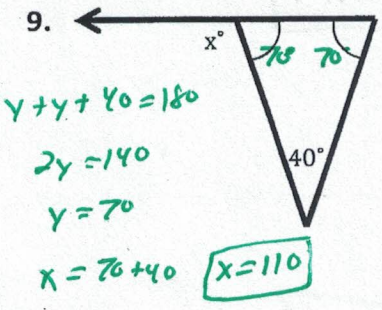 9.
x° 70° 70°
y + y + 40 = 180
40°
2y = 140
y = 70
x = 70 + 40
x = 110